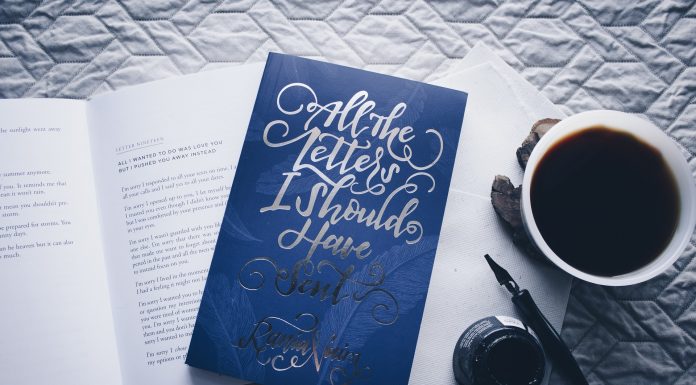 the sunlight went away
y summer anymore.
it. It reminds me that
mean you shouldn't pre-
storm.
prepared for storms. You
ny days.
can be heaven but it can also
LETTER NINETEEN
ALL I WANTED TO DO WAS LOVE YOU
BUT I PUSHED YOU AWAY INSTEAD
I'm sorry I responded to all your texts on time. I
all your calls and I said yes to all your dates.
I'm sorry I opened up to you. I let myself b
I trusted you even though I didn't know you
but I was comforted by your presence and
in your eyes.
I'm sorry I wasn't guarded with you
one else. I'm sorry that there was
that made me want to forget about
pened in the past and all the
instead focus on you.
I'm sorry I lived in the moment
I had a feeling it might not
I'm sorry I wanted you to
or question my intentions
you were tired of women
I'm sorry I wanted
then and you don't
I wanted to
I'm sorry I chose
my options or
All The
Letters
I Should
Have
Sent
Rania Naim